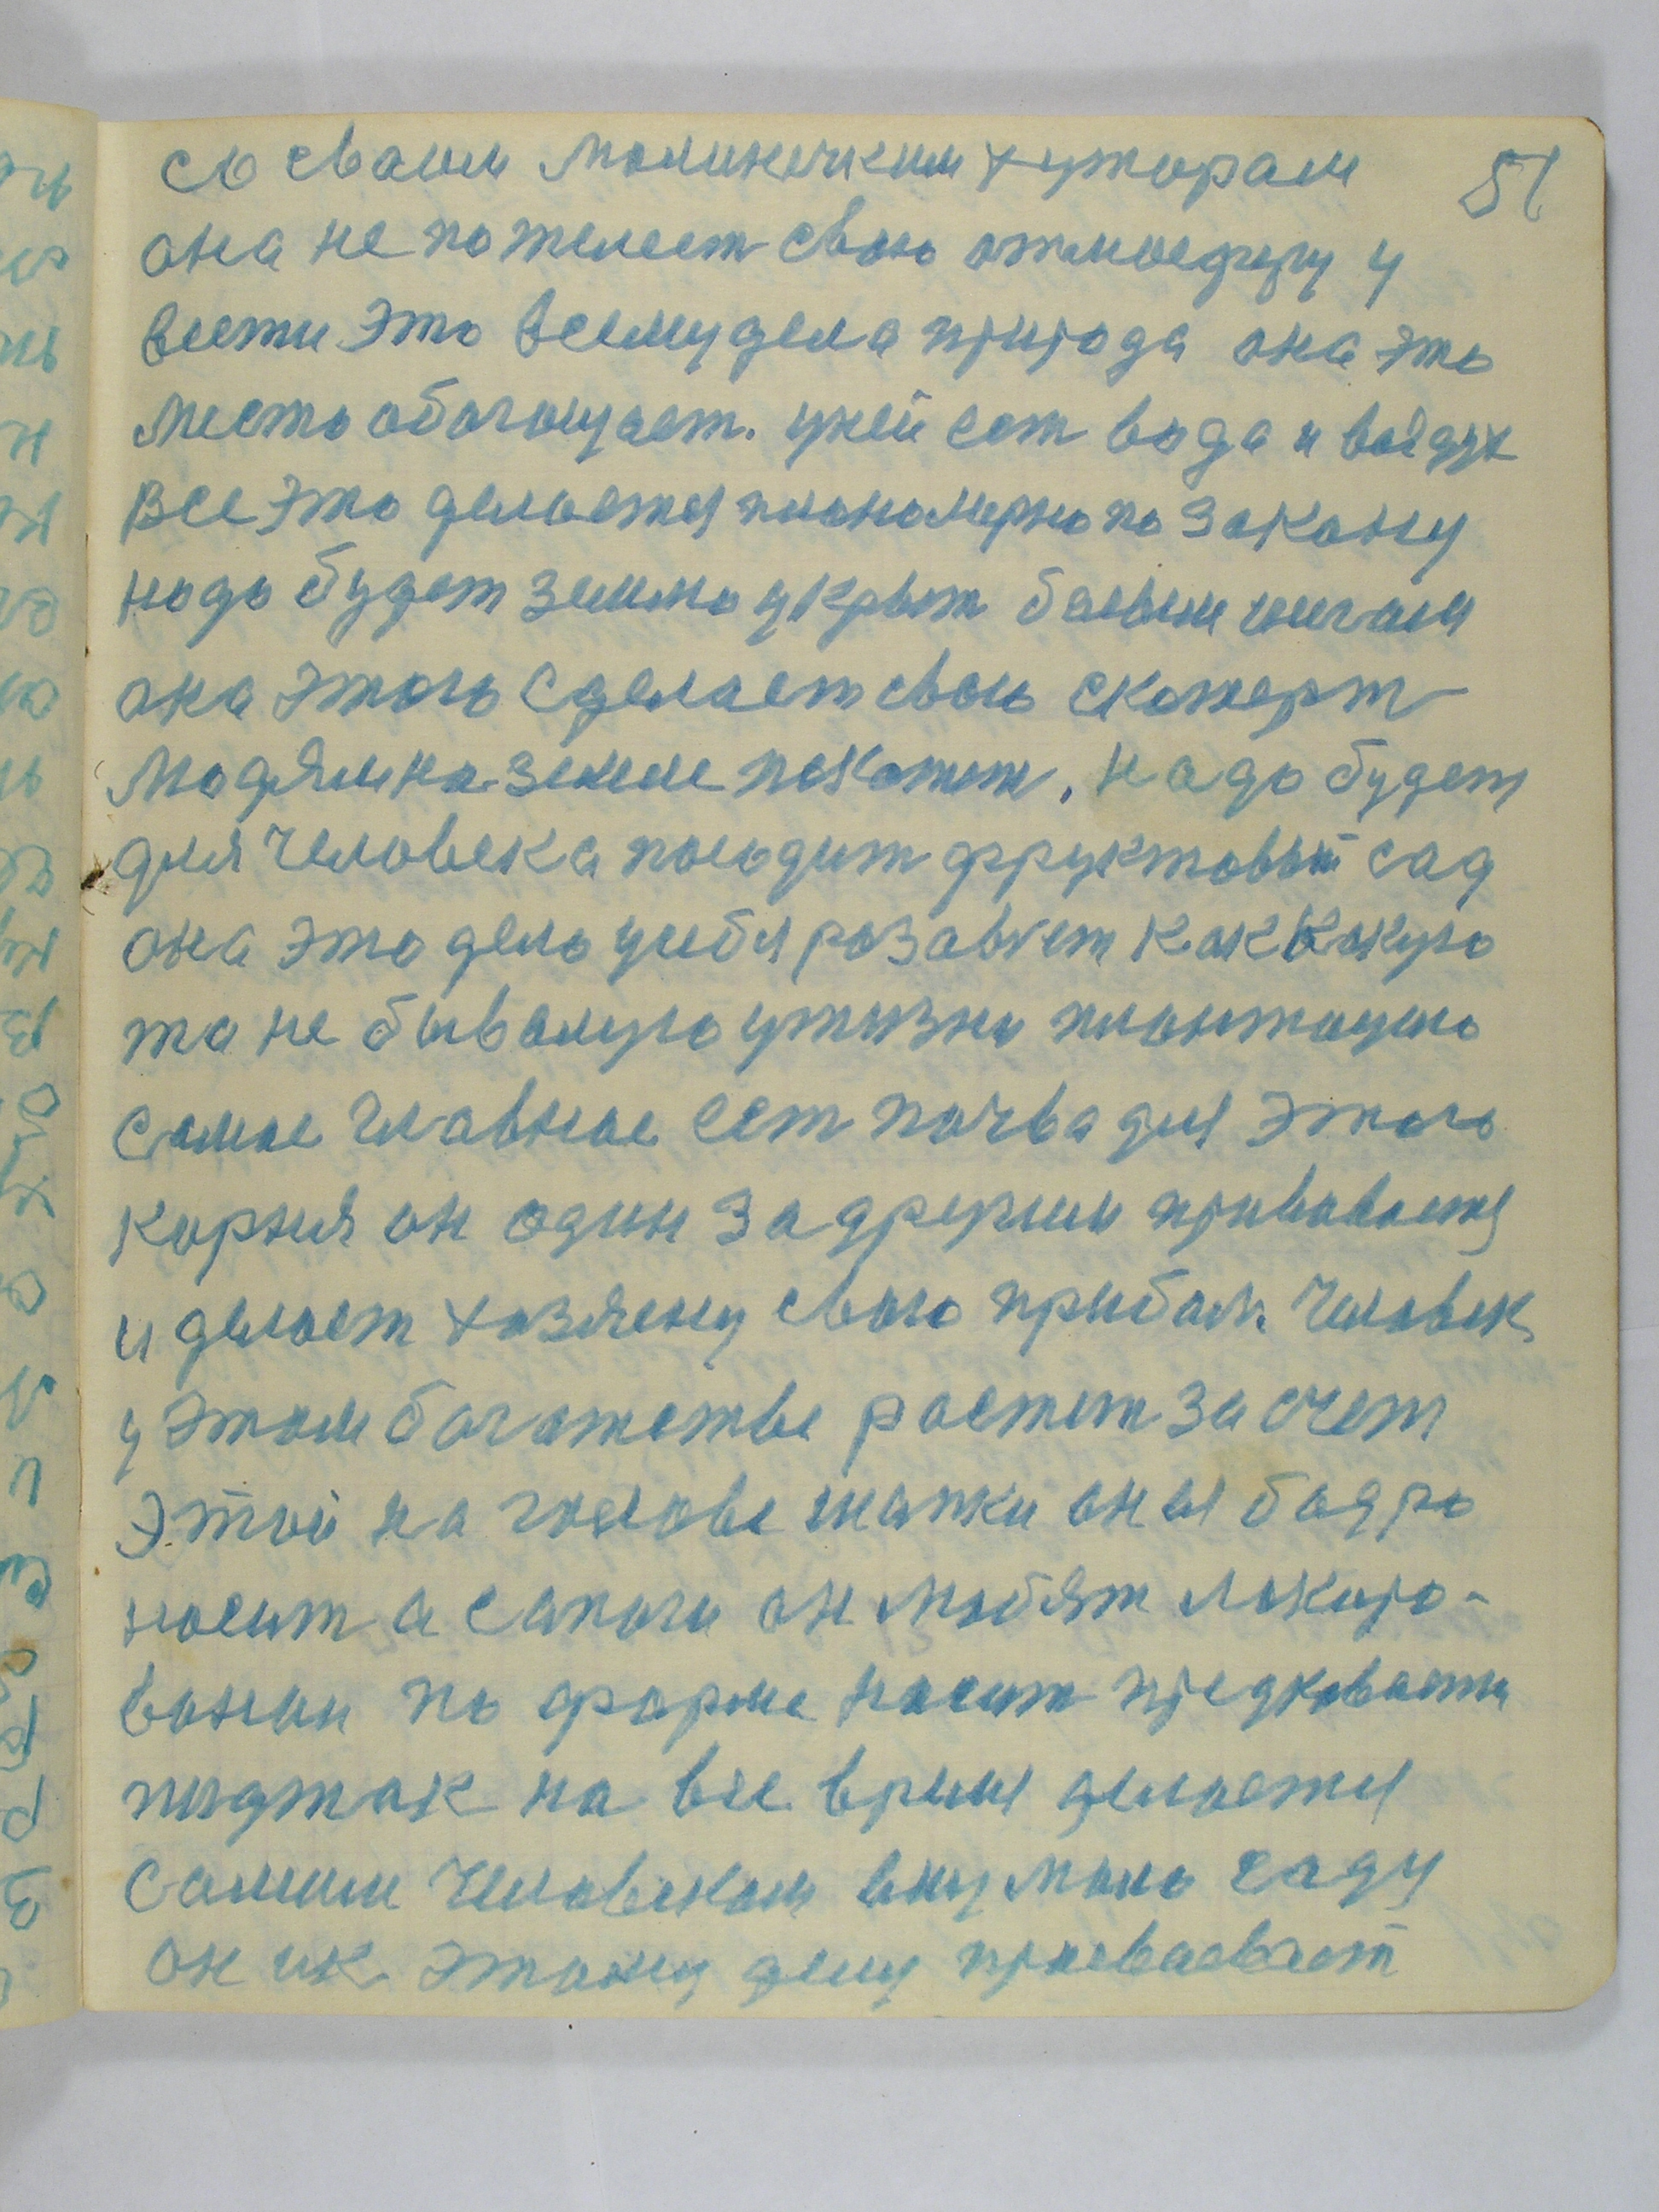 со сваим малинечким хуторам 51
она не пожелеет свою отмосферу у
вести это всему дела природа она это
место обогощает. уней ест вода и воздух
все это делается планомерно по закону
надо будет землю укрыт белым снегам
она этого сделает свою скотерт
людям на земле покажет. надо будет
для человека посадит фруктовый сад
она это дело усебя розавьет как какуюто
то не бывалую ужизни плантацию
самое главное ест почва для этого
корня он один за другим прививается
и делает хозяену свою прибал. Человек
у этом богатстве растет за счет
этой на голове шапки он ея бодро
носит а сапоги он любят лакиро-
вании по форме носит
пиджак на все время делается
самим человеком саду
он их этому делу